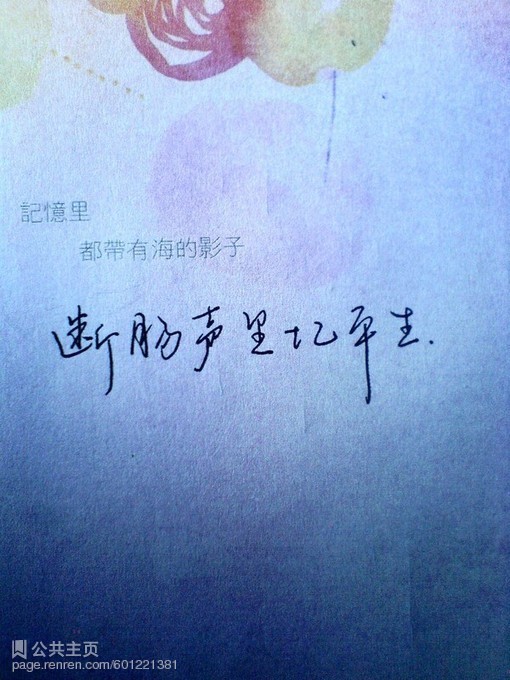 記憶里
都帶有海的影子
断肠声里忆平生.
公共主页
page.renren.com/601221381